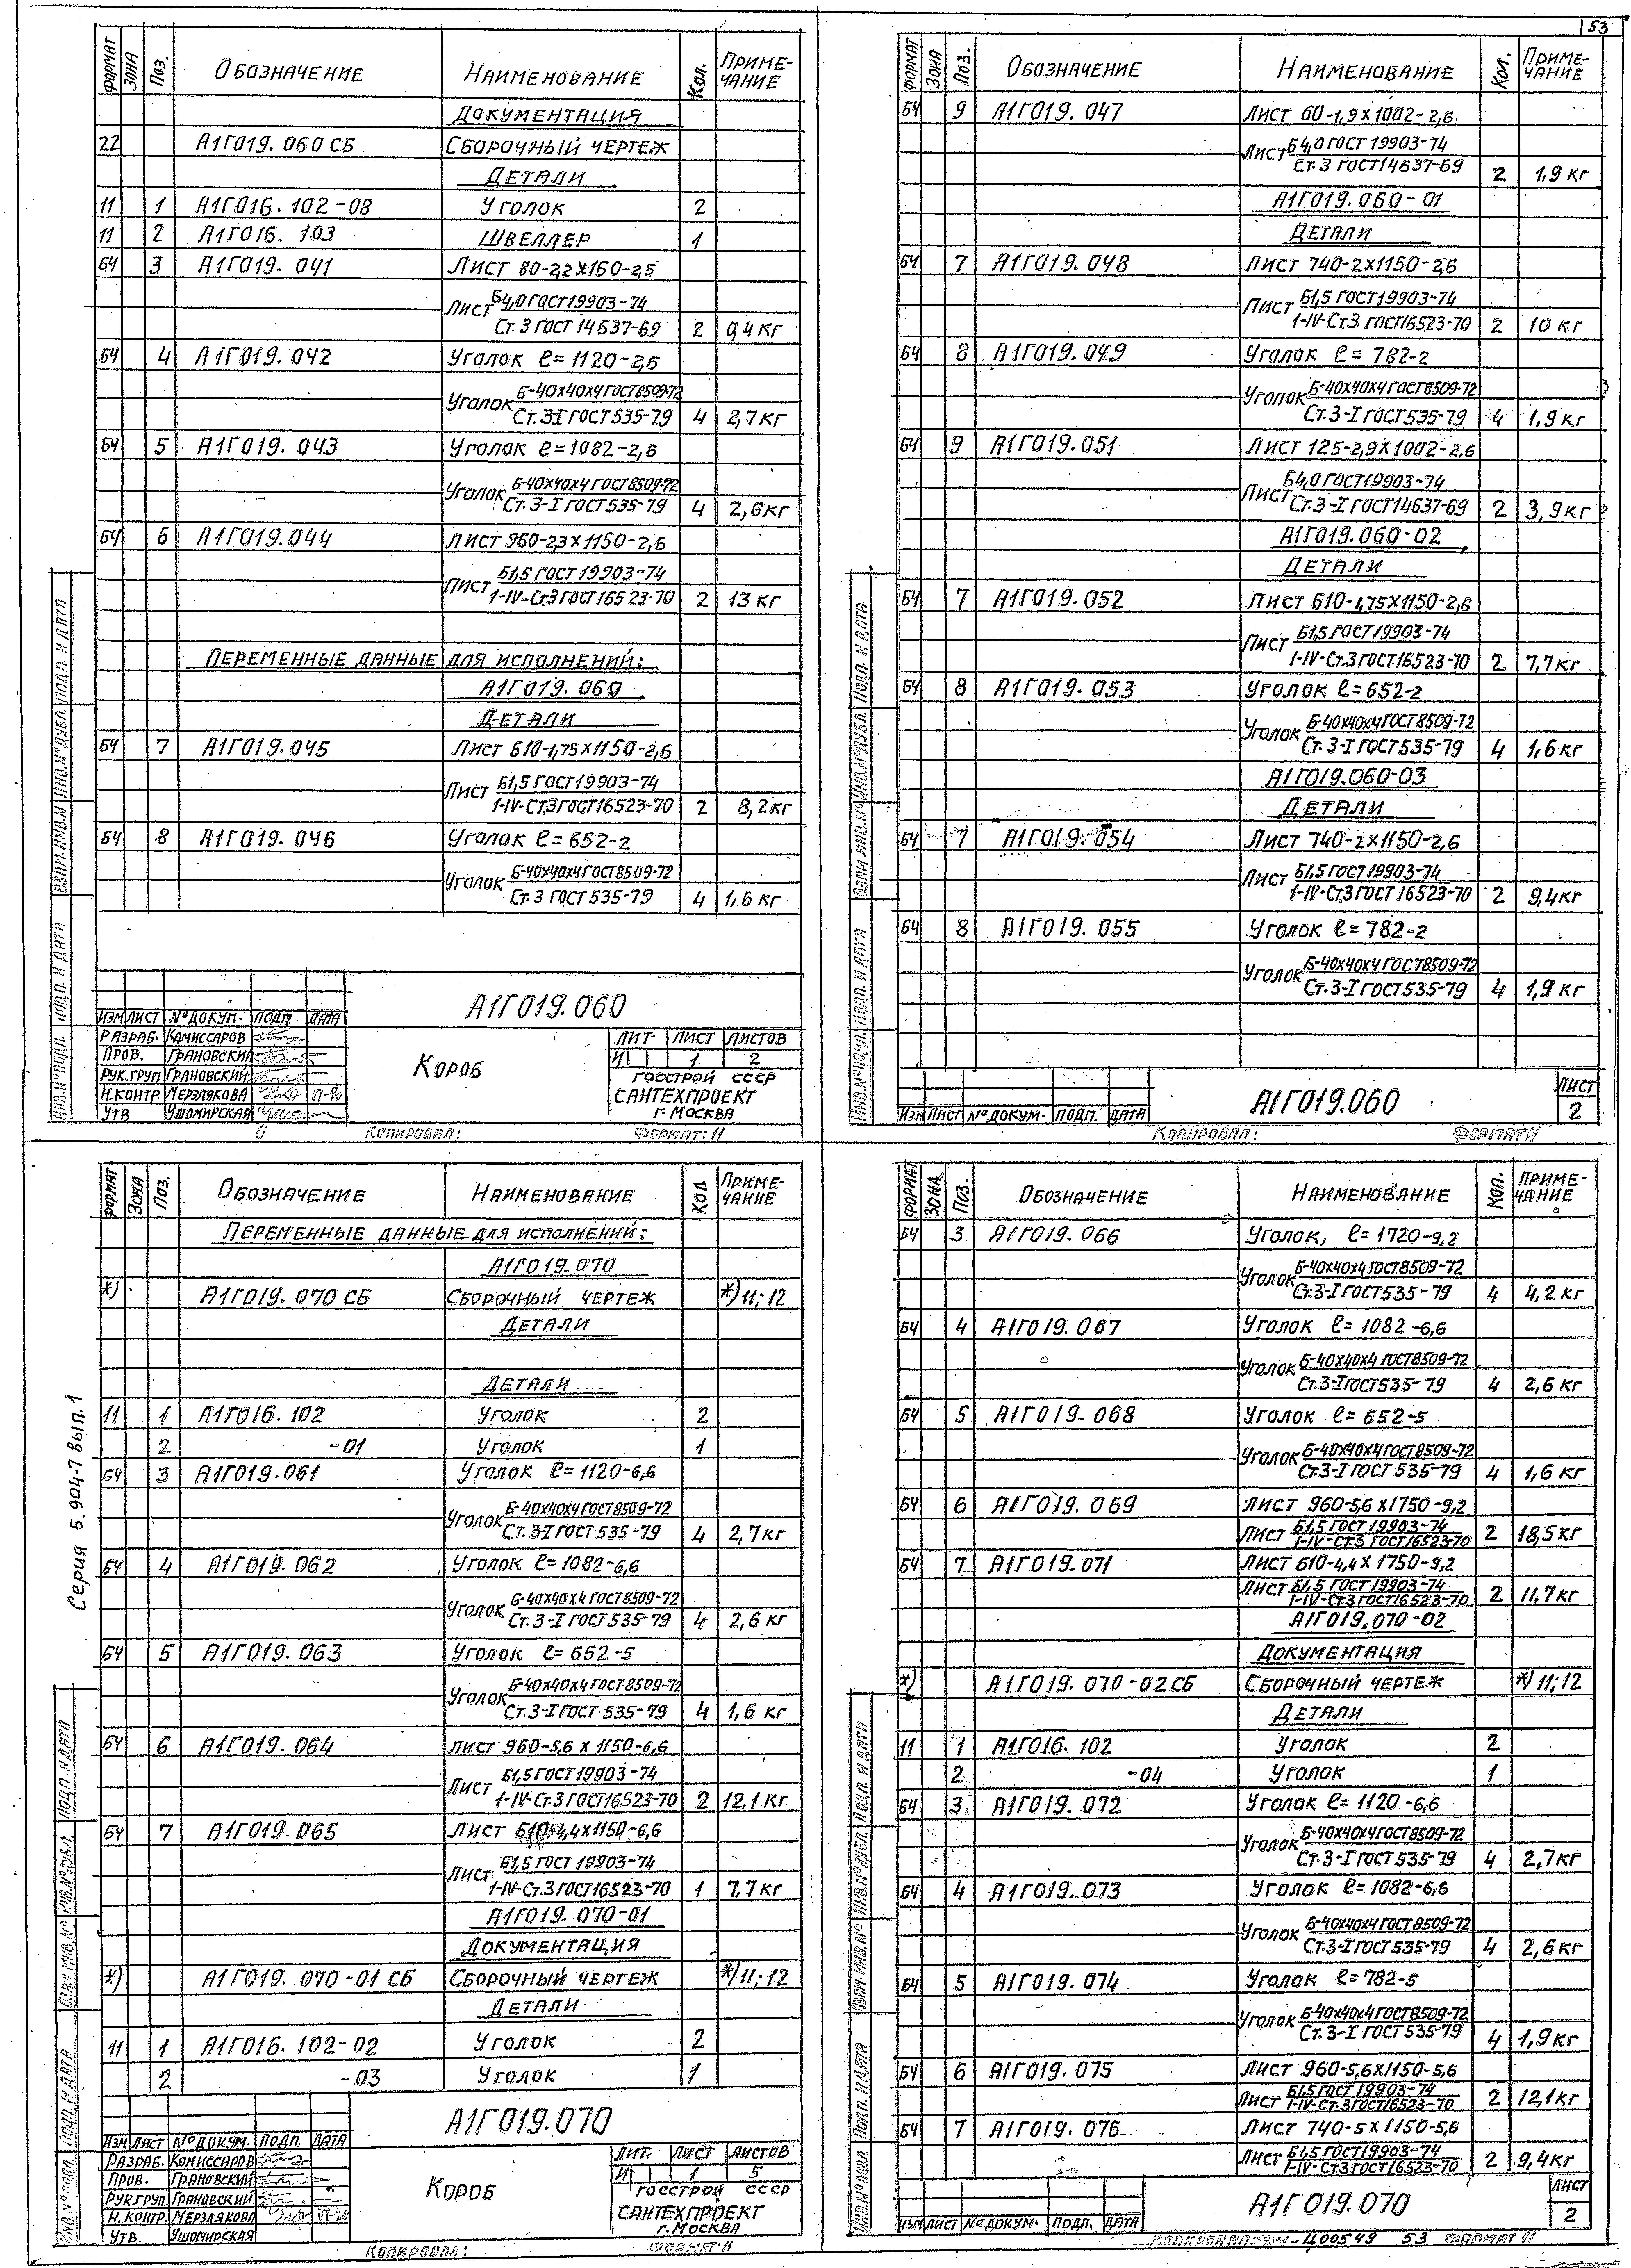 53
ФОРМАТ ЗОНА Поз. Обозначение Наименование Кол. Приме-чание
Документация
22 А1Г019.060 СБ Сборочный чертеж
Детали
11 1 А1Г016.102-08 Уголок 2
11 2 А1Г016.103 Швеллер 1
БЧ 3 А1Г019.041 Лист 80-2,2х160-2,5
Лист Б4,0 ГОСТ 19903-74
Ст.3 ГОСТ 14637-69 2 0,4 кг
БЧ 4 А1Г019.042 Уголок ℓ=1120-2,6
Уголок Б-40х40х4 ГОСТ 8509-72
Ст.3-I ГОСТ 535-79 4 2,7 кг
БЧ 5 А1Г019.043 Уголок ℓ=1082-2,6
Уголок Б-40х40х4 ГОСТ 8509-72
Ст.3-I ГОСТ 535-79 4 2,6 кг
БЧ 6 А1Г019.044 Лист 960-2,3х1150-2,6
Лист Б1,5 ГОСТ 19903-74
1-IV-Ст.3 ГОСТ 16523-70 2 13 кг
Переменные данные для исполнений:
А1Г019.060
Детали
БЧ 7 А1Г019.045 Лист 610-1,75х1150-2,6
Лист Б1,5 ГОСТ 19903-74
1-IV-Ст.3 ГОСТ 16523-70 2 8,2 кг
БЧ 8 А1Г019.046 Уголок ℓ=652-2
Уголок Б-40х40х4 ГОСТ 8509-72
Ст.3 ГОСТ 535-79 4 1,6 кг
А1Г019.060
Изм Лист № докум. Подп. Дата
Разраб. Комиссаров
Пров. Грановский
Рук.груп Грановский
Н.контр. Мерзлякова
Утв Ушомирская
Короб
Лит. Лист Листов
И 1 2
Госстрой СССР
САНТЕХПРОЕКТ
г. Москва
Копировал: Формат: 11
Инв.№ подл. Подп. и дата Взам.инв.№ Инв.№ дубл. Подп. и дата
ФОРМАТ ЗОНА Поз. Обозначение Наименование Кол. Приме-чание
БЧ 9 А1Г019.047 Лист 60-1,9х1002-2,6
Лист Б4,0 ГОСТ 19903-74
Ст.3 ГОСТ 14637-69 2 1,9 кг
А1Г019.060-01
Детали
БЧ 7 А1Г019.048 Лист 740-2х1150-2,6
Лист Б1,5 ГОСТ 19903-74
1-IV-Ст.3 ГОСТ 16523-70 2 10 кг
БЧ 8 А1Г019.049 Уголок ℓ=782-2
Уголок Б-40х40х4 ГОСТ 8509-72
Ст.3-I ГОСТ 535-79 4 1,9 кг
БЧ 9 А1Г019.051 Лист 125-2,9х1002-2,6
Лист Б4,0 ГОСТ 19903-74
Ст.3-I ГОСТ 14637-69 2 3,9 кг
А1Г019.060-02
Детали
БЧ 7 А1Г019.052 Лист 610-1,75х1150-2,6
Лист Б1,5 ГОСТ 19903-74
1-IV-Ст.3 ГОСТ 16523-70 2 7,7 кг
БЧ 8 А1Г019.053 Уголок ℓ=652-2
Уголок Б-40х40х4 ГОСТ 8509-72
Ст.3-I ГОСТ 535-79 4 1,6 кг
А1Г019.060-03
Детали
БЧ 7 А1Г019.054 Лист 740-2х1150-2,6
Лист Б1,5 ГОСТ 19903-74
1-IV-Ст.3 ГОСТ 16523-70 2 9,4 кг
БЧ 8 А1Г019.055 Уголок ℓ=782-2
Уголок Б-40х40х4 ГОСТ 8509-72
Ст.3-I ГОСТ 535-79 4 1,9 кг
Изм Лист № докум. Подп. Дата
А1Г019.060
Лист
2
Копировал: Формат 11
Инв.№ подл. Подп. и дата Взам.инв.№ Инв.№ дубл. Подп. и дата
Серия 5.904-7 вып.1
ФОРМАТ ЗОНА Поз. Обозначение Наименование Кол. Приме-чание
Переменные данные для исполнений:
А1Г019.070
*) А1Г019.070 СБ Сборочный чертеж *) 11; 12
Детали
Детали
11 1 А1Г016.102 Уголок 2
2 -01 Уголок 1
БЧ 3 А1Г019.061 Уголок ℓ=1120-6,6
Уголок Б-40х40х4 ГОСТ 8509-72
Ст.3-I ГОСТ 535-79 4 2,7 кг
БЧ 4 А1Г019.062 Уголок ℓ=1082-6,6
Уголок Б-40х40х4 ГОСТ 8509-72
Ст.3-I ГОСТ 535-79 4 2,6 кг
БЧ 5 А1Г019.063 Уголок ℓ=652-5
Уголок Б-40х40х4 ГОСТ 8509-72
Ст.3-I ГОСТ 535-79 4 1,6 кг
БЧ 6 А1Г019.064 Лист 960-5,6х1150-6,6
Лист Б1,5 ГОСТ 19903-74
1-IV-Ст.3 ГОСТ 16523-70 2 12,1 кг
БЧ 7 А1Г019.065 Лист 610-4,4х1150-6,6
Лист Б1,5 ГОСТ 19903-74
1-IV-Ст.3 ГОСТ 16523-70 1 7,7 кг
А1Г019.070-01
Документация
*) А1Г019.070-01 СБ Сборочный чертеж *) 11; 12
Детали
11 1 А1Г016.102-02 Уголок 2
2 -03 Уголок 1
А1Г019.070
Изм Лист № докум. Подп. Дата
Разраб. Комиссаров
Пров. Грановский
Рук.груп Грановский
Н.контр. Мерзлякова
Утв Ушомирская
Короб
Лит. Лист Листов
И 1 5
Госстрой СССР
САНТЕХПРОЕКТ
г. Москва
Копировал: Формат 11
Инв.№ подл. Подп. и дата Взам.инв.№ Инв.№ дубл. Подп. и дата
ФОРМАТ ЗОНА Поз. Обозначение Наименование Кол. Приме-чание
БЧ 3 А1Г019.066 Уголок, ℓ=1720-9,2
Уголок Б-40х40х4 ГОСТ 8509-72
Ст.3-I ГОСТ 535-79 4 4,2 кг
БЧ 4 А1Г019.067 Уголок ℓ=1082-6,6
Уголок Б-40х40х4 ГОСТ 8509-72
Ст.3-I ГОСТ 535-79 4 2,6 кг
БЧ 5 А1Г019.068 Уголок ℓ=652-5
Уголок Б-40х40х4 ГОСТ 8509-72
Ст.3-I ГОСТ 535-79 4 1,6 кг
БЧ 6 А1Г019.069 Лист 960-5,6х1750-9,2
Лист Б1,5 ГОСТ 19903-74
1-IV-Ст.3 ГОСТ 16523-70 2 18,5 кг
БЧ 7 А1Г019.071 Лист 610-4,4х1750-9,2
Лист Б1,5 ГОСТ 19903-74
1-IV-Ст.3 ГОСТ 16523-70 2 11,7 кг
А1Г019.070-02
Документация
*) А1Г019.070-02 СБ Сборочный чертеж *) 11; 12
Детали
11 1 А1Г016.102 Уголок 2
2 -04 Уголок 1
БЧ 3 А1Г019.072 Уголок ℓ=1120-6,6
Уголок Б-40х40х4 ГОСТ 8509-72
Ст.3-I ГОСТ 535-79 4 2,7 кг
БЧ 4 А1Г019.073 Уголок ℓ=1082-6,6
Уголок Б-40х40х4 ГОСТ 8509-72
Ст.3-I ГОСТ 535-79 4 2,6 кг
БЧ 5 А1Г019.074 Уголок ℓ=782-5
Уголок Б-40х40х4 ГОСТ 8509-72
Ст.3-I ГОСТ 535-79 4 1,9 кг
БЧ 6 А1Г019.075 Лист 960-5,6х1150-5,6
Лист Б1,5 ГОСТ 19903-74
1-IV-Ст.3 ГОСТ 16523-70 2 12,1 кг
БЧ 7 А1Г019.076 Лист 740-5х1150-5,6
Лист Б1,5 ГОСТ 19903-74
1-IV-Ст.3 ГОСТ 16523-70 2 9,4 кг
Изм Лист № докум. Подп. Дата
А1Г019.070
Лист
2
Копировал: Ц00549 53 Формат 11
Инв.№ подл. Подп. и дата Взам.инв.№ Инв.№ дубл. Подп. и дата